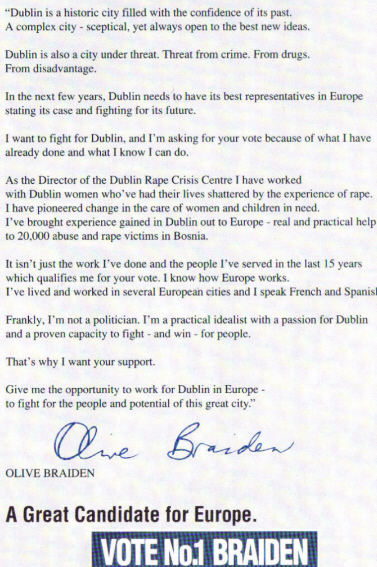 “Dublin is a historic city filled with the confidence of its past.
A complex city - sceptical, yet always open to the best new ideas.
Dublin is also a city under threat. Threat from crime. From drugs.
From disadvantage.
In the next few years, Dublin needs to have its best representatives in Europe
stating its case and fighting for its future.
I want to fight for Dublin, and I’m asking for your vote because of what I have
already done and what I know I can do.
As the Director of the Dublin Rape Crisis Centre I have worked
with Dublin women who’ve had their lives shattered by the experience of rape.
I have pioneered change in the care of women and children in need.
I’ve brought experience gained in Dublin out to Europe - real and practical help
to 20,000 abuse and rape victims in Bosnia.
It isn’t just the work I’ve done and the people I’ve served in the last 15 years
which qualifies me for your vote. I know how Europe works.
I’ve lived and worked in several European cities and I speak French and Spanis
Frankly, I’m not a politician. I’m a practical idealist with a passion for Dublin
and a proven capacity to fight - and win - for people.
That’s why I want your support.
Give me the opportunity to work for Dublin in Europe -
to fight for the people and potential of this great city.”
Olive Braiden
OLIVE BRAIDEN
A Great Candidate for Europe.
VOTE No.1 BRAIDEN